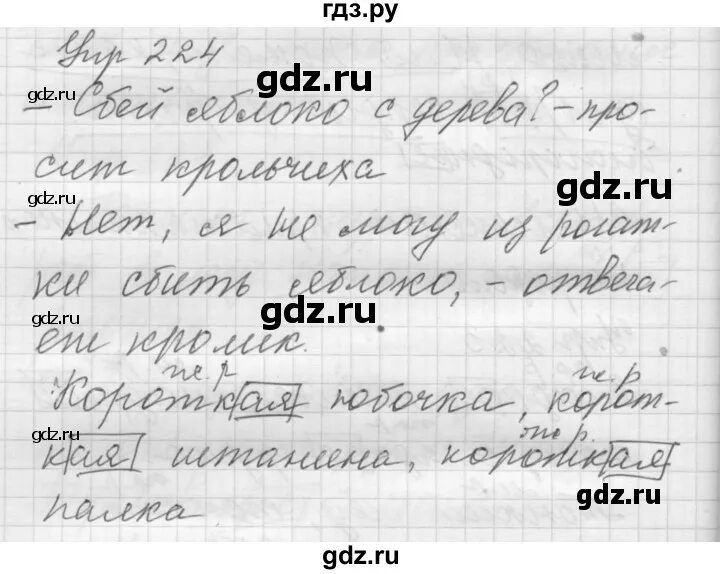 гдз.ру
Упр 224
gdz.ru
gdz.ru
– Сбей яблоко с дерева? – про-
сит крольчиха
gdz.ru
gdz.ru
– Нет, я не могу из рогат-
ки сбить яблоко, – отвеча-
gdz.ru
gdz.ru
ет кролик.
ж.р ж.р
Короткая юбочка, корот-
gdz.ru
ж.р.
кая штанина, короткая
gdz.ru
gdz.ru
палка
gdz.ru